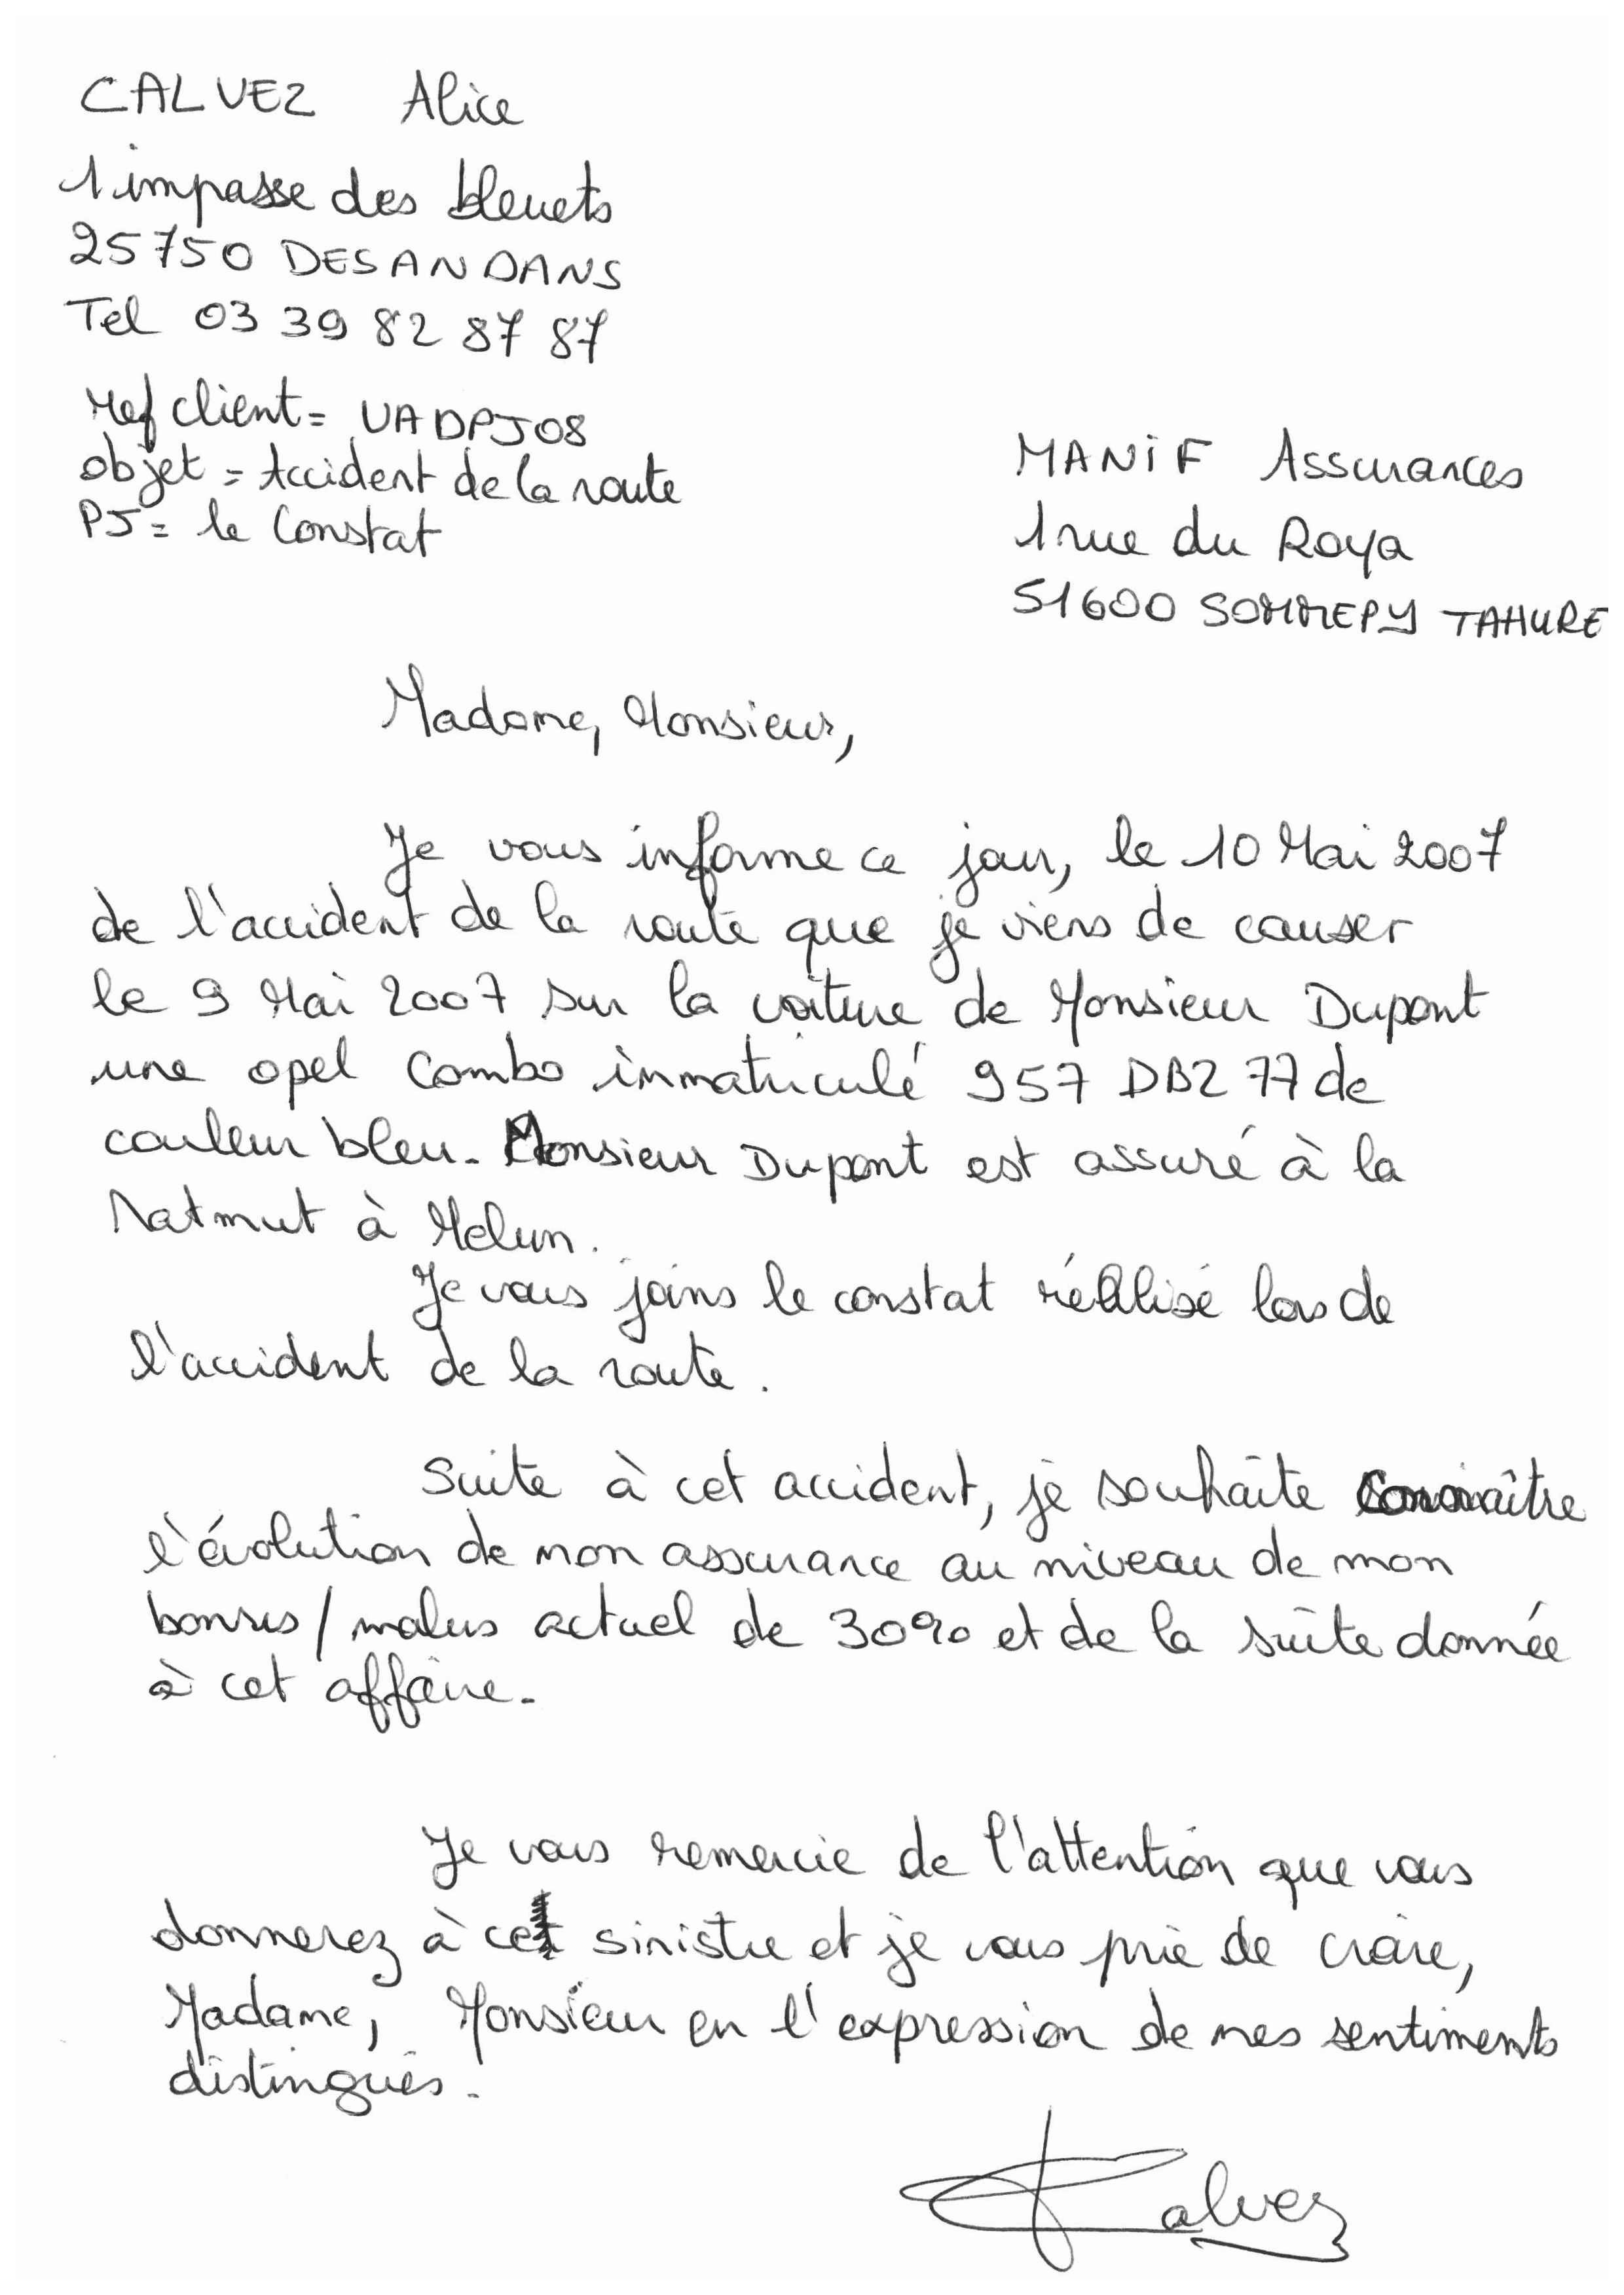 CALVEZ Alice
1 impasse des bleuets
25750 DESANDANS
Tel 03 39 82 87 87
ref client = UADPJ08
objet = Accident de la route
PJ = le Constat
MANiF Assurances
1 rue du Roya
51600 SOMMEPY TAHURE
Madame, Monsieur,
Je vous informe ce jour, le 10 Mai 2007
de l'accident de la route que je viens de causer
le 9 Mai 2007 sur la voiture de Monsieur Dupont
une opel Combo inmatriculé 957 DBZ 77 de
couleur bleu. Monsieur Dupont est assuré à la
Natmut à Melun.
Je vous joins le constat réalisé lors de
l'accident de la route.
Suite à cet accident, je souhaite connaître
l'évolution de mon assurance au niveau de mon
bonus/malus actuel de 30% et de la suite donnée
à cet affaire.
Je vous remercie de l'attention que vous
donnerez à ce sinistre et je vous prie de croire,
Madame, Monsieur en l'expression de mes sentiments
distingués.
Calvez